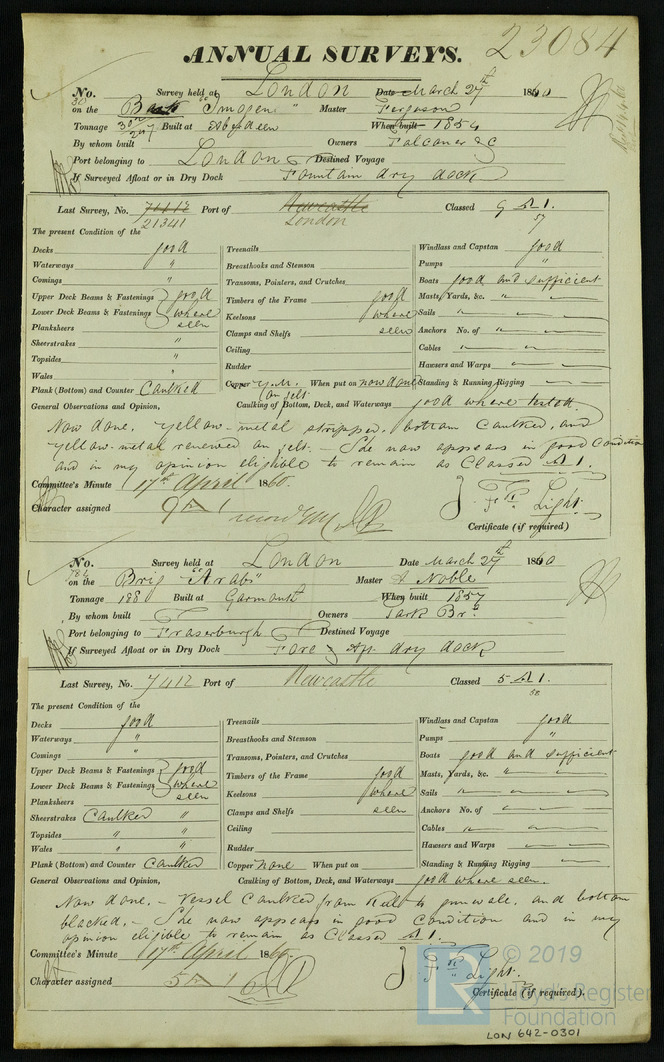 23084
ANNUAL SURVEYS.
No. Survey held at London Date March 27th 1860
30 on the Bark "Imogen" Master Ferguson
Tonnage 302 Built at Aberdeen When built 1854
By whom built Owners Falconer & C
Port belonging to London Destined Voyage
If Surveyed Afloat or in Dry Dock Fountain dry dock
Last Survey, No. 21341 Port of Newcastle London Classed 9 A 1. 57
The present Condition of the
Decks good Treenails Windlass and Capstan good
Waterways " Breasthooks and Stemson Pumps "
Comings " Transoms, Pointers, and Crutches Boats good and sufficient
Upper Deck Beams & Fastenings good Timbers of the Frame good Masts, Yards, &c. "
Lower Deck Beams & Fastenings where Keelsons where Sails "
Planksheers seen Clamps and Shelfs seen Anchors No. of "
Sheerstrakes " Ceiling Cables "
Topsides " Rudder Hawsers and Warps
Wales " Copper Y.M. on felt When put on now done Standing & Running Rigging
Plank (Bottom) and Counter Caulked Caulking of Bottom, Deck, and Waterways good where tested
General Observations and Opinion,
Now done. Yellow-metal stripped, bottom caulked, and
yellow-metal renewed on felt. – She now appears in good condition
and in my opinion eligible to remain as Classed A 1.
Committee's Minute 17th April 1860.
Character assigned 9 A 1
Light.
Certificate (if required)
No. Survey held at London Date March 27th 1860
on the Brig "Arab" Master Noble
Tonnage 188 Built at Garmouth When built 1857
By whom built Owners Park Brs.
Port belonging to Fraserburgh Destined Voyage
If Surveyed Afloat or in Dry Dock Fore & Aft dry dock
Last Survey, No. 7412 Port of Newcastle Classed 5 A 1. 58
The present Condition of the
Decks good Treenails Windlass and Capstan good
Waterways " Breasthooks and Stemson Pumps "
Comings " Transoms, Pointers, and Crutches Boats good and sufficient
Upper Deck Beams & Fastenings good Timbers of the Frame good Masts, Yards, &c. "
Lower Deck Beams & Fastenings where Keelsons where Sails "
Planksheers seen Clamps and Shelfs seen Anchors No. of
Sheerstrakes Caulked " Ceiling Cables "
Topsides " " Rudder Hawsers and Warps
Wales " " Copper None When put on Standing & Running Rigging
Plank (Bottom) and Counter Caulked Caulking of Bottom, Deck, and Waterways good where seen.
General Observations and Opinion,
Now done. – Vessel Caulked from Keel to gunwale, and bottom
blacked. – She now appears in good condition and in my
opinion eligible to remain as Classed A 1.
Committee's Minute 17th April 1860.
Character assigned 5 A 1
Light.
Certificate (if required).
© 2019
LR Lloyd's Register
Foundation
LON 642-0301